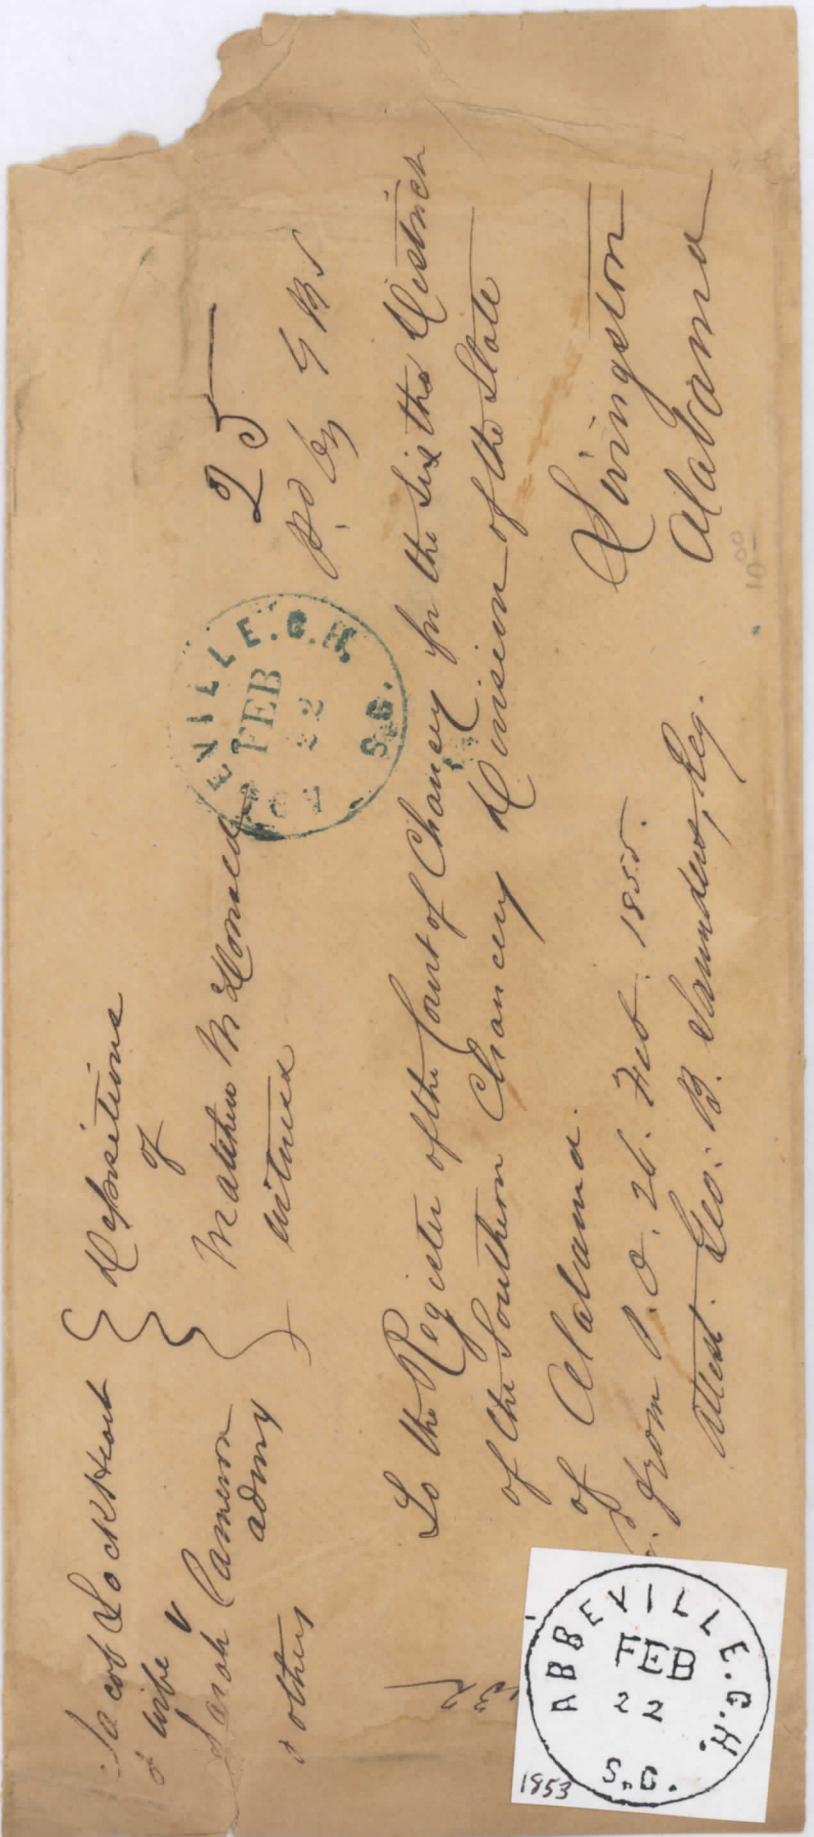 Jacob Lockheart
& wife
v
Sarah Cameron
admx
& others
Depositions
of
Matthew McDonald
witness
25
pd by GBS
EVILLE. C.H.
FEB
22
S.C.
To the Register of the Court of Chancery for the Sixth District
of the Southern Chancery Division of the State
of Alabama.
Livingston
Alabama
from P.O. 26. Feb. 1855.
Attest. Geo. B. Saunders, Reg.
10.00
ABBEVILLE. C.H.
FEB
22
S.C.
1853